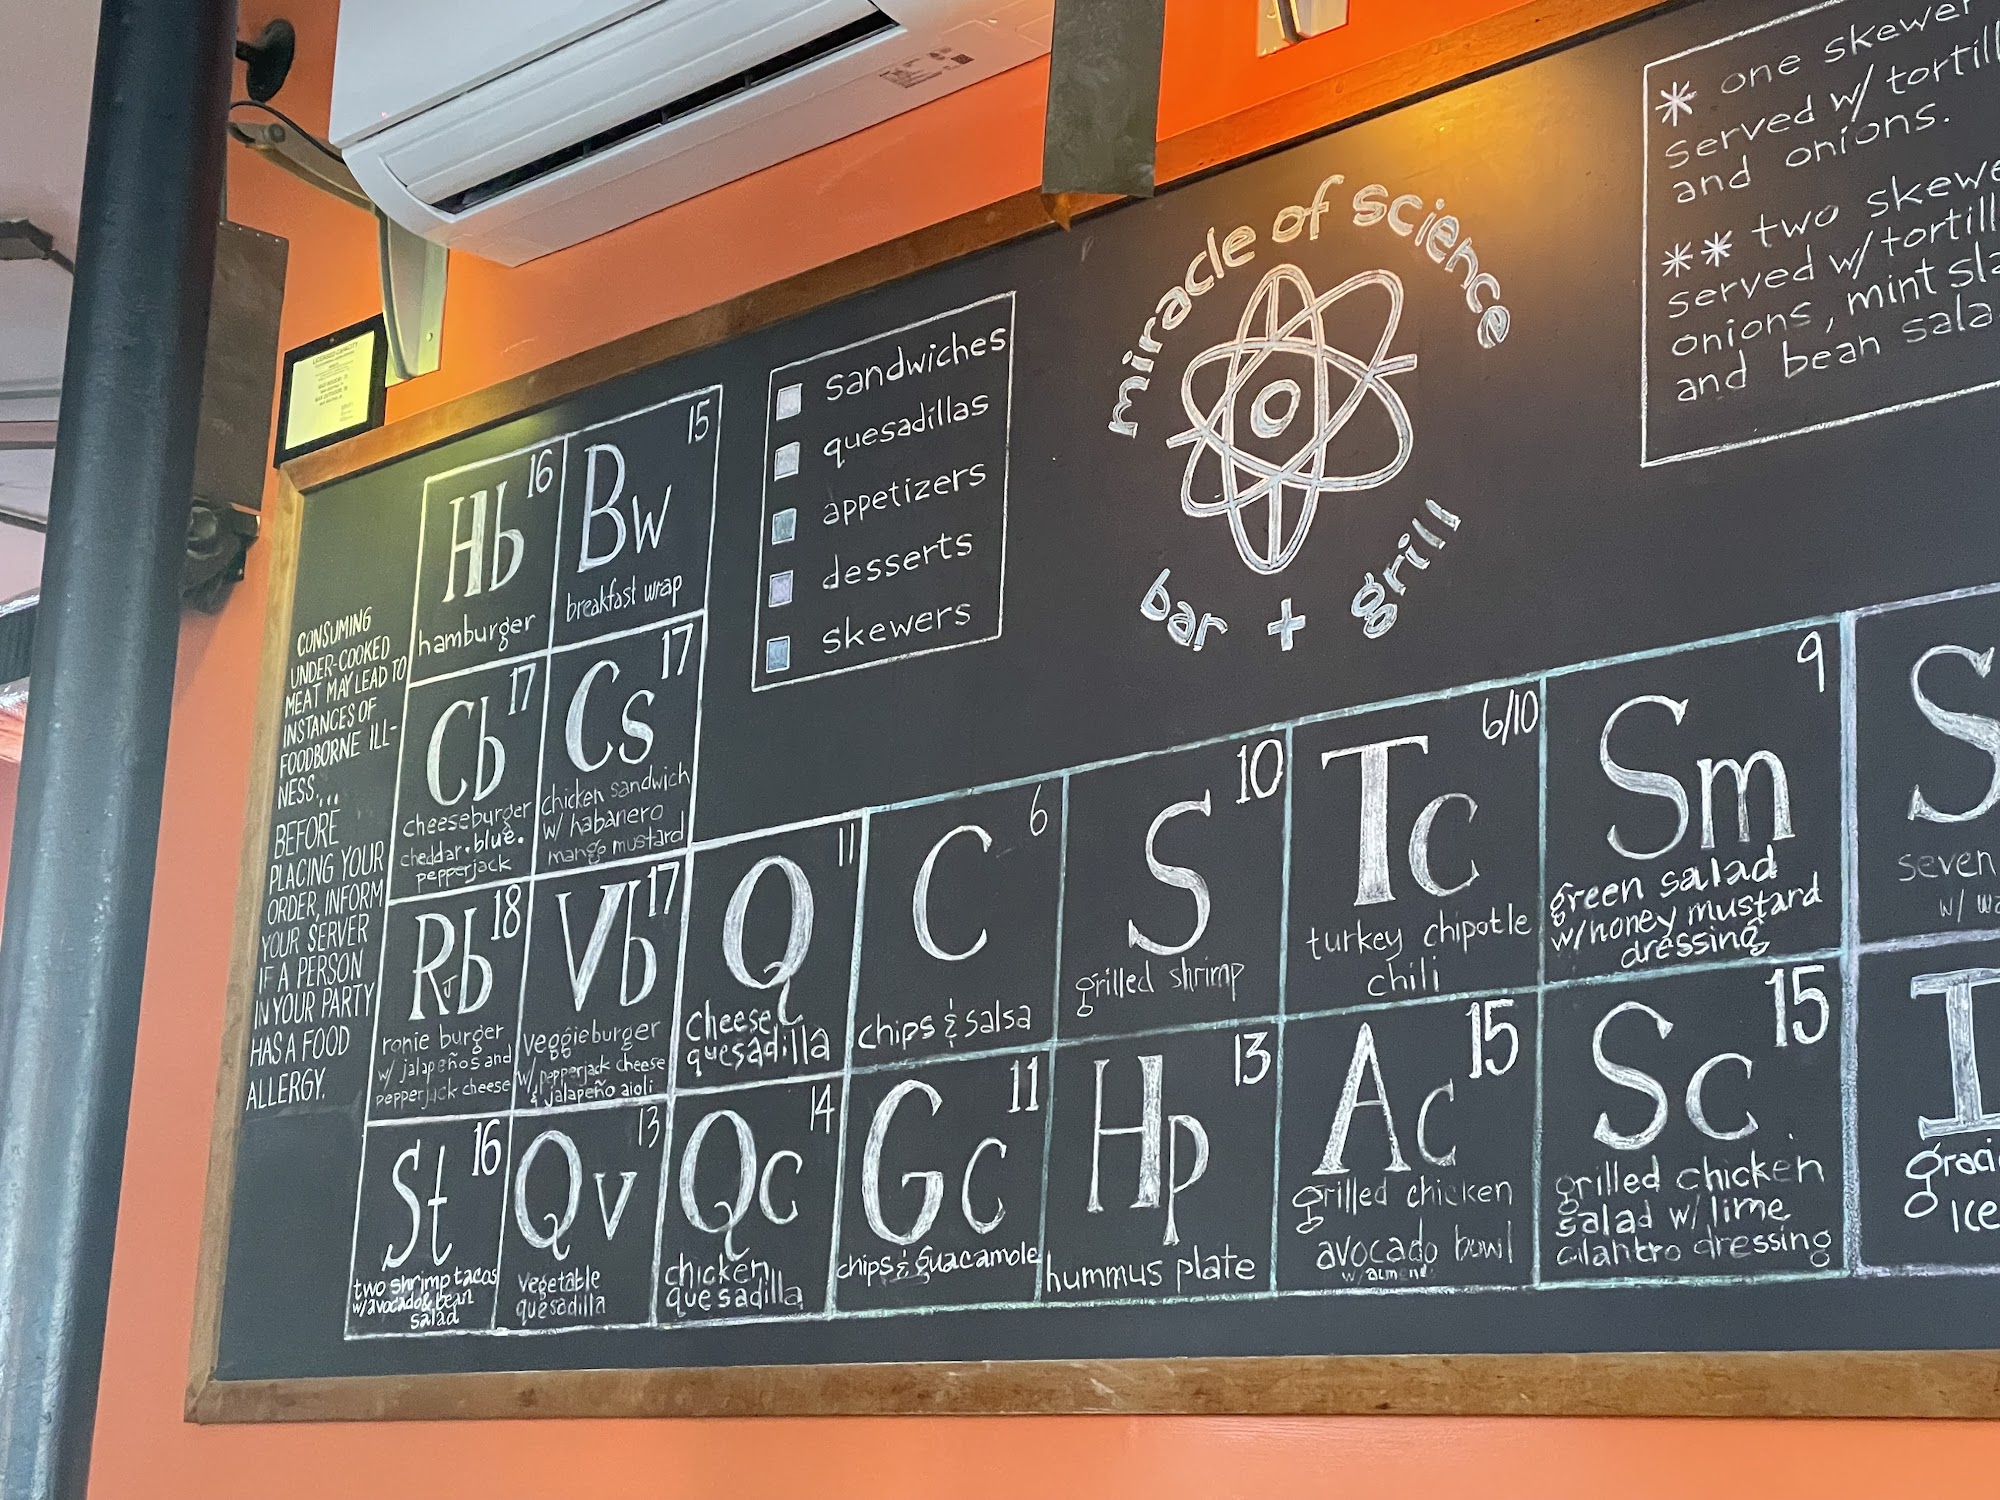 LICENSED CAPACITY
CONSUMING
UNDER-COOKED
MEAT MAY LEAD TO
INSTANCES OF
FOODBORNE ILL-
NESS...
BEFORE
PLACING YOUR
ORDER, INFORM
YOUR SERVER
IF A PERSON
IN YOUR PARTY
HAS A FOOD
ALLERGY.
16
Hb
hamburger
15
Bw
breakfast wrap
17
Cb
cheeseburger
cheddar • blue •
pepperjack
17
Cs
chicken sandwich
w/ habanero
mango mustard
18
RJb
ronie burger
w/ jalapeños and
pepperjack cheese
17
Vb
veggieburger
w/ pepperjack cheese
& jalapeño aioli
16
St
two shrimp tacos
w/avocado & bean
salad
13
Qv
vegetable
quesadilla
sandwiches
quesadillas
appetizers
desserts
skewers
miracle of science
bar + grill
* one skewer
served w/
and onions.
** two
served w/
onions, mint
and bean
11
Q
cheese
quesadilla
14
Qc
chicken
quesadilla
6
C
chips & salsa
11
Gc
chips & guacamole
10
S
grilled shrimp
13
Hp
hummus plate
6/10
Tc
turkey chipotle
chili
15
Ac
grilled chicken
avocado bowl
w/ almonds
9
Sm
green salad
w/honey mustard
dressing
15
Sc
grilled chicken
salad w/ lime
cilantro dressing
S
seven
w/
I
Ice